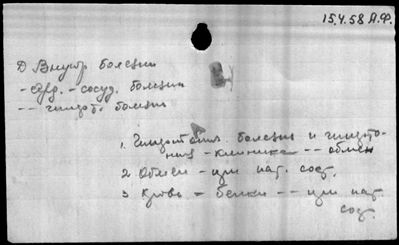 15.4.58 А.Ф.
Д Внутр болезни
- серд. - сосуд. болезни
- - гипот. болезни
1. Гипотонич. болезнь и гипото-
ния - клиника - - обмен
2 Обмен - при пат. сос.
3 Кровь - белки - - при пат.
сос.